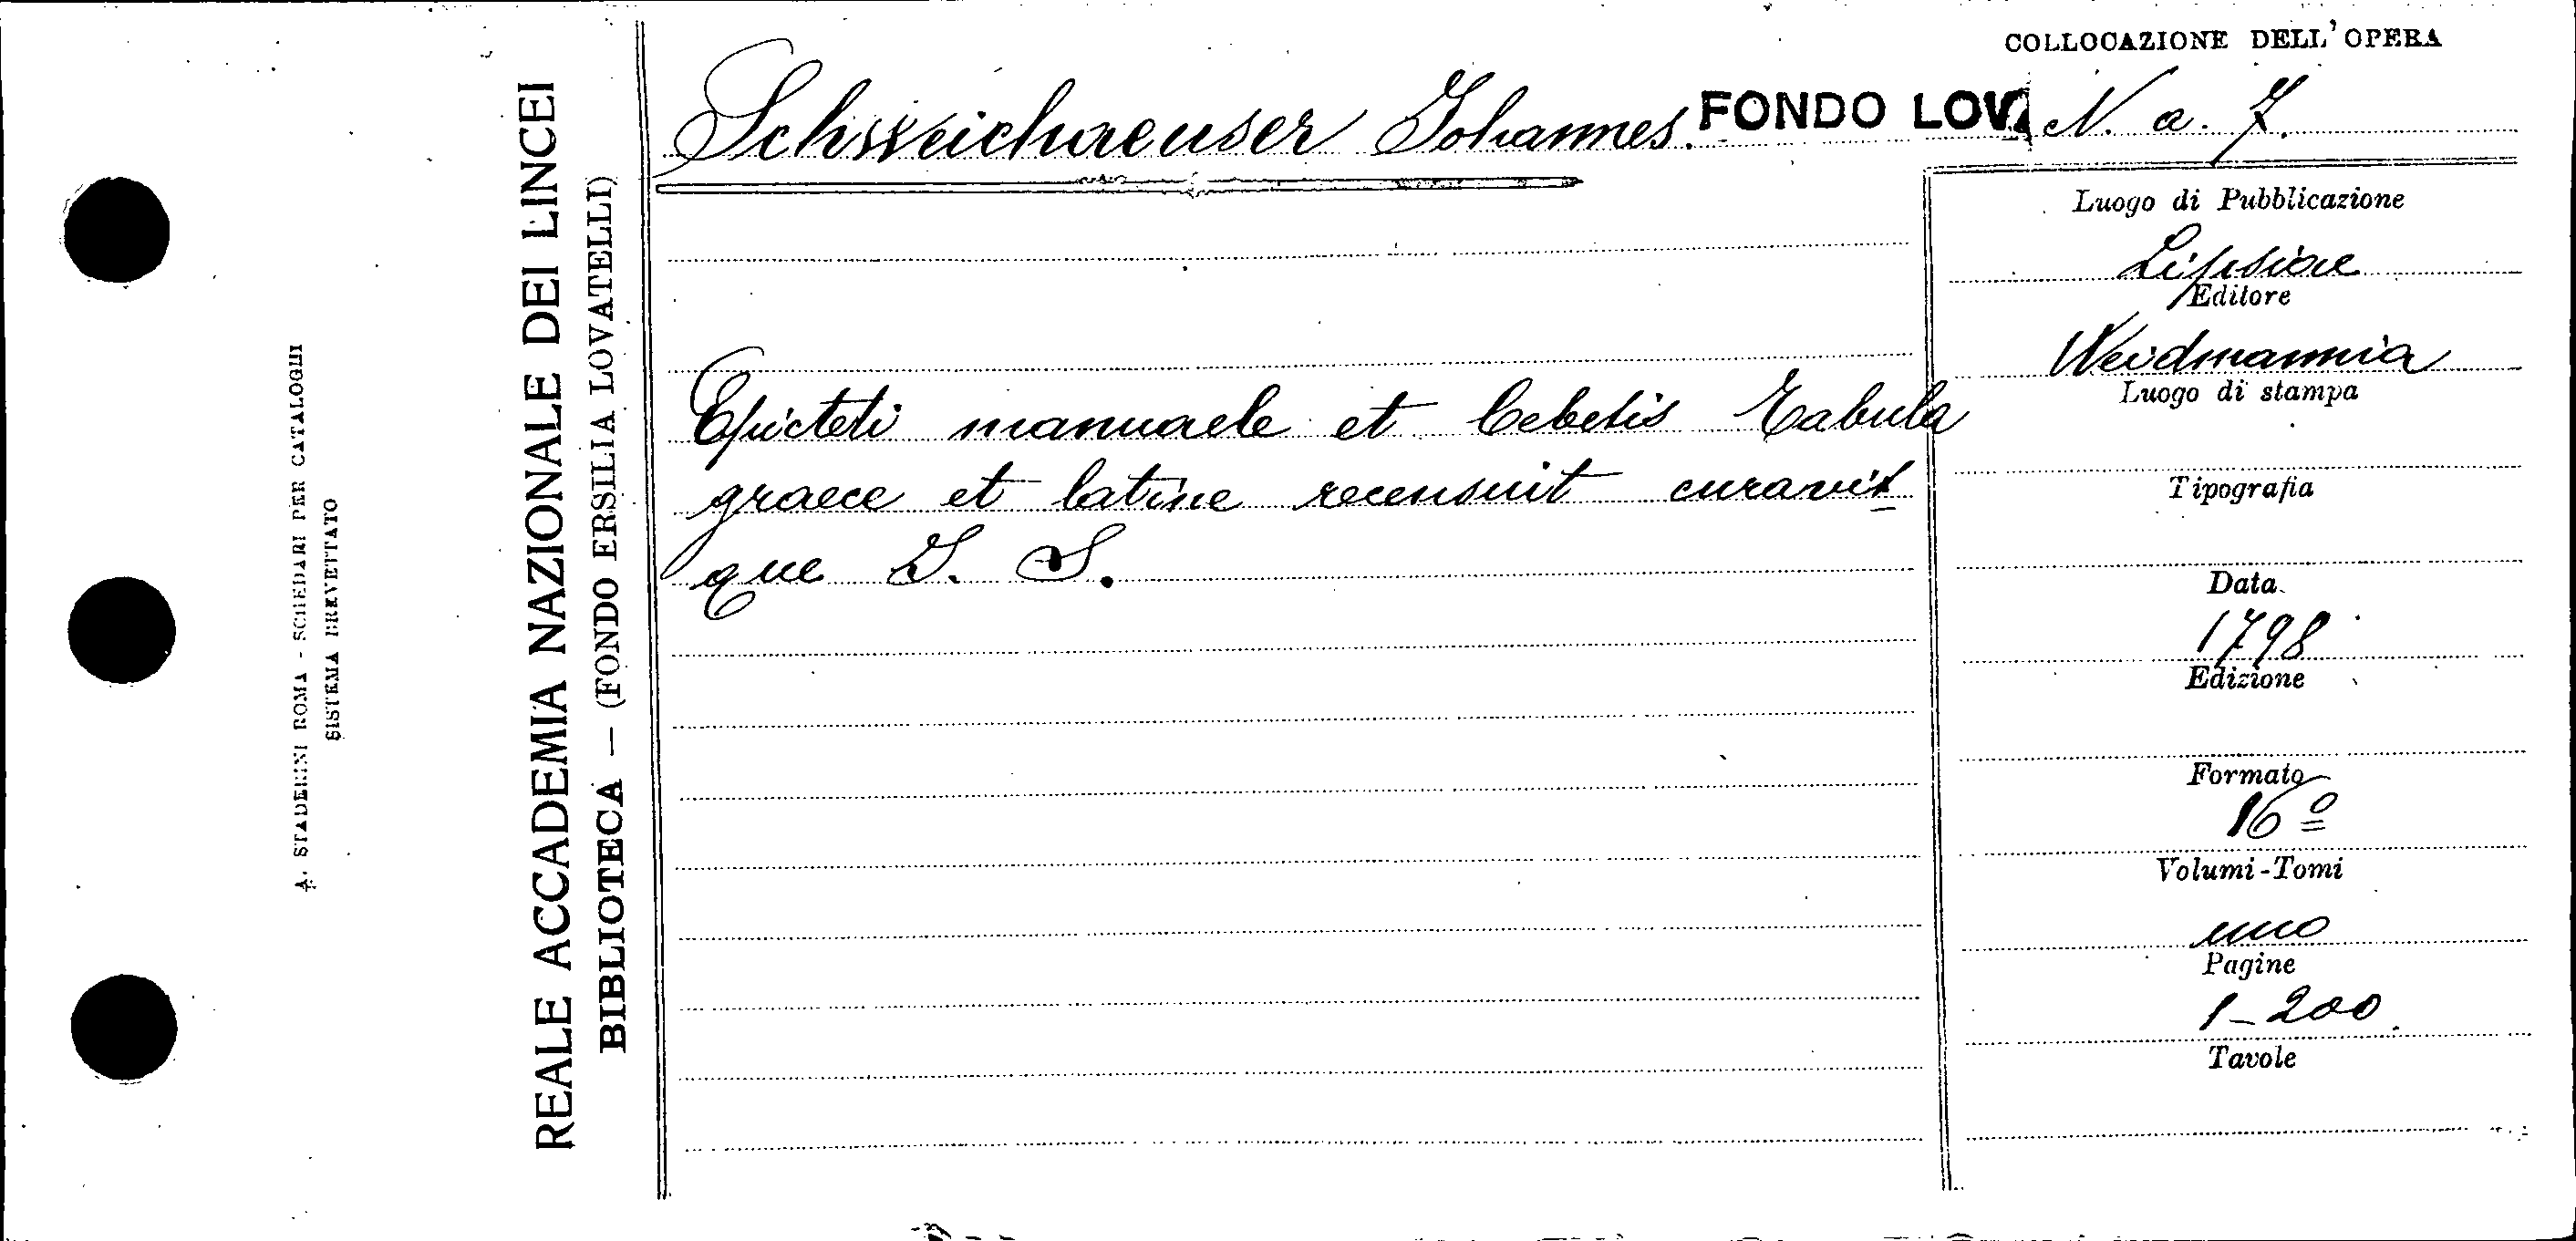 COLLOCAZIONE DELL'OPERA
Schweichaeuser Johannes. FONDO LOV N. a. 7.
Luogo di Pubblicazione
Lipsiae
Editore
Weidmannia
Luogo di stampa
Tipografia
Data
1798
Edizione
Formato
16º
Volumi-Tomi
uno
Pagine
1-200.
Tavole
Epicteti manuaele et Cebetis Tabula
graece et latine recensuit curavit
que J. S.
REALE ACCADEMIA NAZIONALE DEI LINCEI
BIBLIOTECA — (FONDO ERSILIA LOVATELLI)
A. STADERINI ROMA - SCHEDARI PER CATALOGHI
SISTEMA BREVETTATO